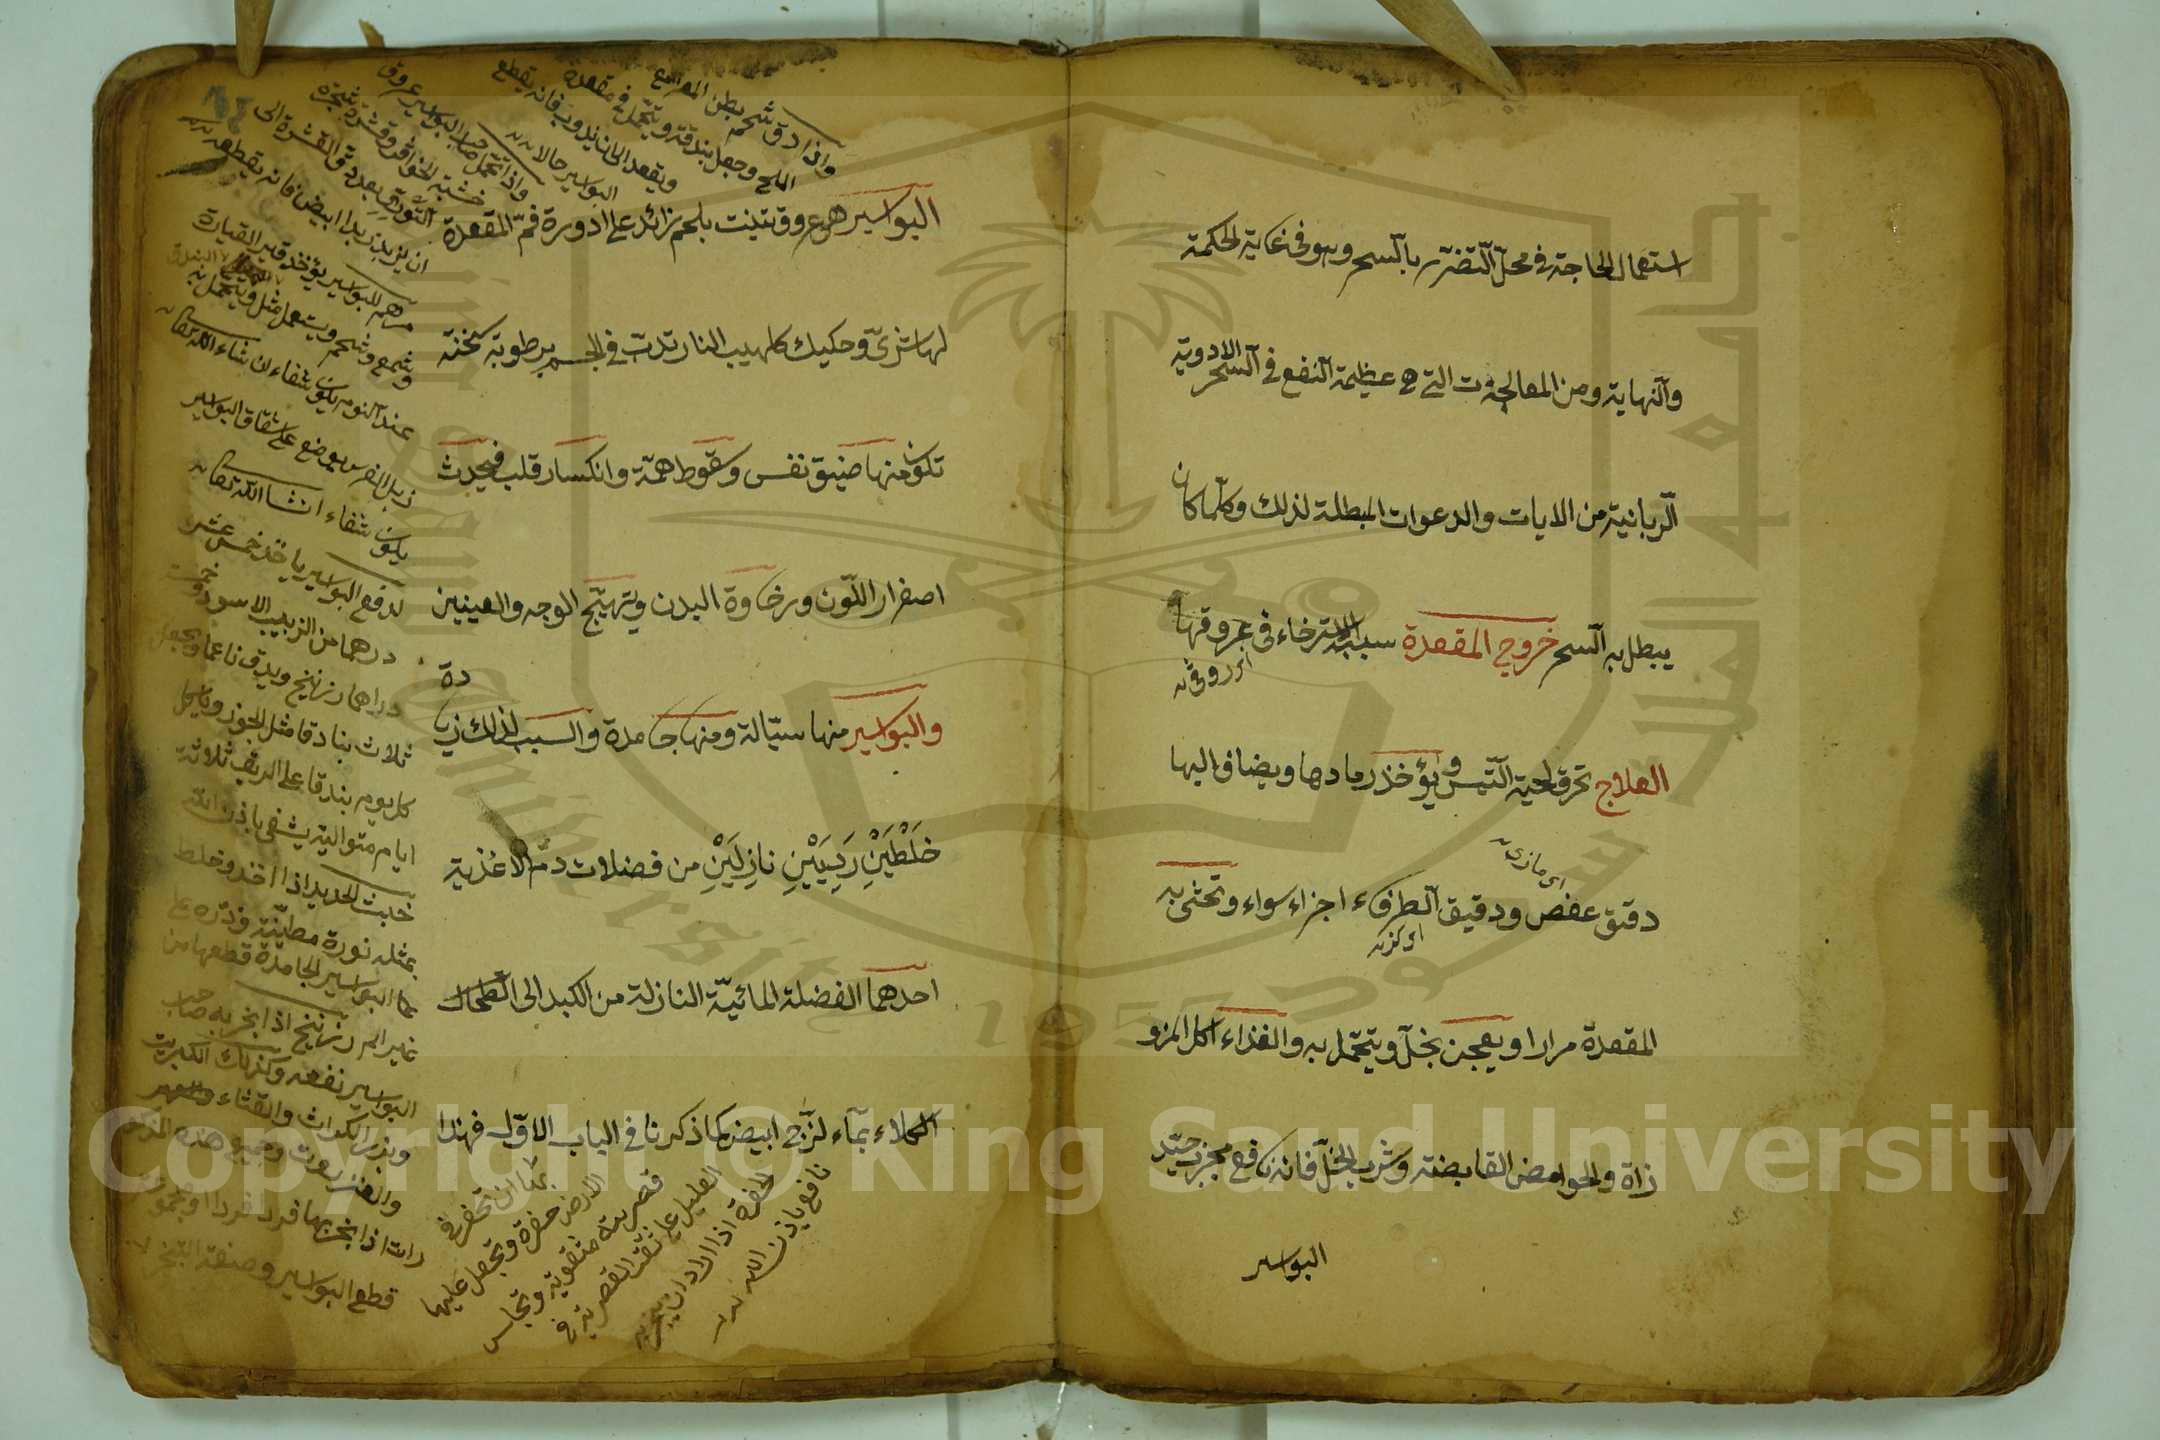 استعمال الحاجة في محل التضرر بالسحر وهو في غاية الحكمة
والنهاية ومن المعالجات التي هي عظيمة النفع في السحر الادوية
الربانية من الايات والدعوات المبطلة لذلك وكلما كان
يبطل به السحر خروج المقعدة سببه الاسترخاء في عروقها
العلاج تحرق لحية التيس ويؤخذ رمادها ويضاف اليها
اى مازى
دقيق عفص ودقيق الطرفاء اجزاء سواء وتحشى به
المقعدة مرارا ويعجن بخل ويتحمل به والغذاء اكل المزو
زاة والحوامض القابضة وشرب الخل فانه نافع مجرب جيد
البواسير
البواسير هي عروق تنبت بلحم زائد على ادورة فم المقعدة
لها شرى وحكيك كلهيب النار تدب في الجسم برطوبة كخنة
تكون منها ضيق نفس وسقوط همة وانكسار قلب فيحدث
اصفرار اللون ورخاوة البدن وتهيج الوجه والعينين
والبواسير منها سيالة ومنها جامدة والسبب لذلك زيا
دة
خلطين رديين نازلين من فضلات دم الاغذية
احدهما الفضلة المائية النازلة من الكبد الى الطحال
الكلاء بماء لزج ابيض كما ذكرنا في الباب الاول فهذا
واذا دق شحم بطن
الملح وجعل بندقة ويتحمل في مقعدة
ويقعد الى ان يذوب فانه يقطع
البواسير حالا
واذا تحمل صاحب البواسير عروق
ان يزبد زبدا ابيض فانه يقطعه
مرهم للبواسير يؤخذ قير القيارة
وشمع وشحم ويستعمل مثل البندق ويتحمل به
عند النوم يكون شفاء ان شاء الله تعالى
زبل الفرس يوضع على شقاق البواسير
يكون شفاء انشا الله تعالى
لدفع البواسير ياخذ خمس عشر
درهما من الزبيب الاسود وخمسة
دراهما زرنيخ ويدق ناعما ويجعل
ثلاث بنادقا مثل الجوز وياكل
كل يوم بندقا على الريق ثلاثة
ايام متوالية يشفى باذن الله
خبث الحديد اذا اخذ وخلط
بمثله نورة مطينة وذره على
البواسير الجامدة قطعها من
غير الم زرنيخ اذا بخر به صاحب
البواسير نفعه وكذلك الكبريت
وبذر الكراث والقثاء
والعنزروت وجميع هذه المذكو
رات اذا بخر بها فردا فردا او مجموعة
قطع البواسير وصنعة التبخر
بها ان تحفر في
الارض حفرة وتجعل عليها
قصرية مثقوبة وتجلس
العليل على ثقب القصرية في
الحفرة اذا اراد ان يتبخر به
نافع باذن الله